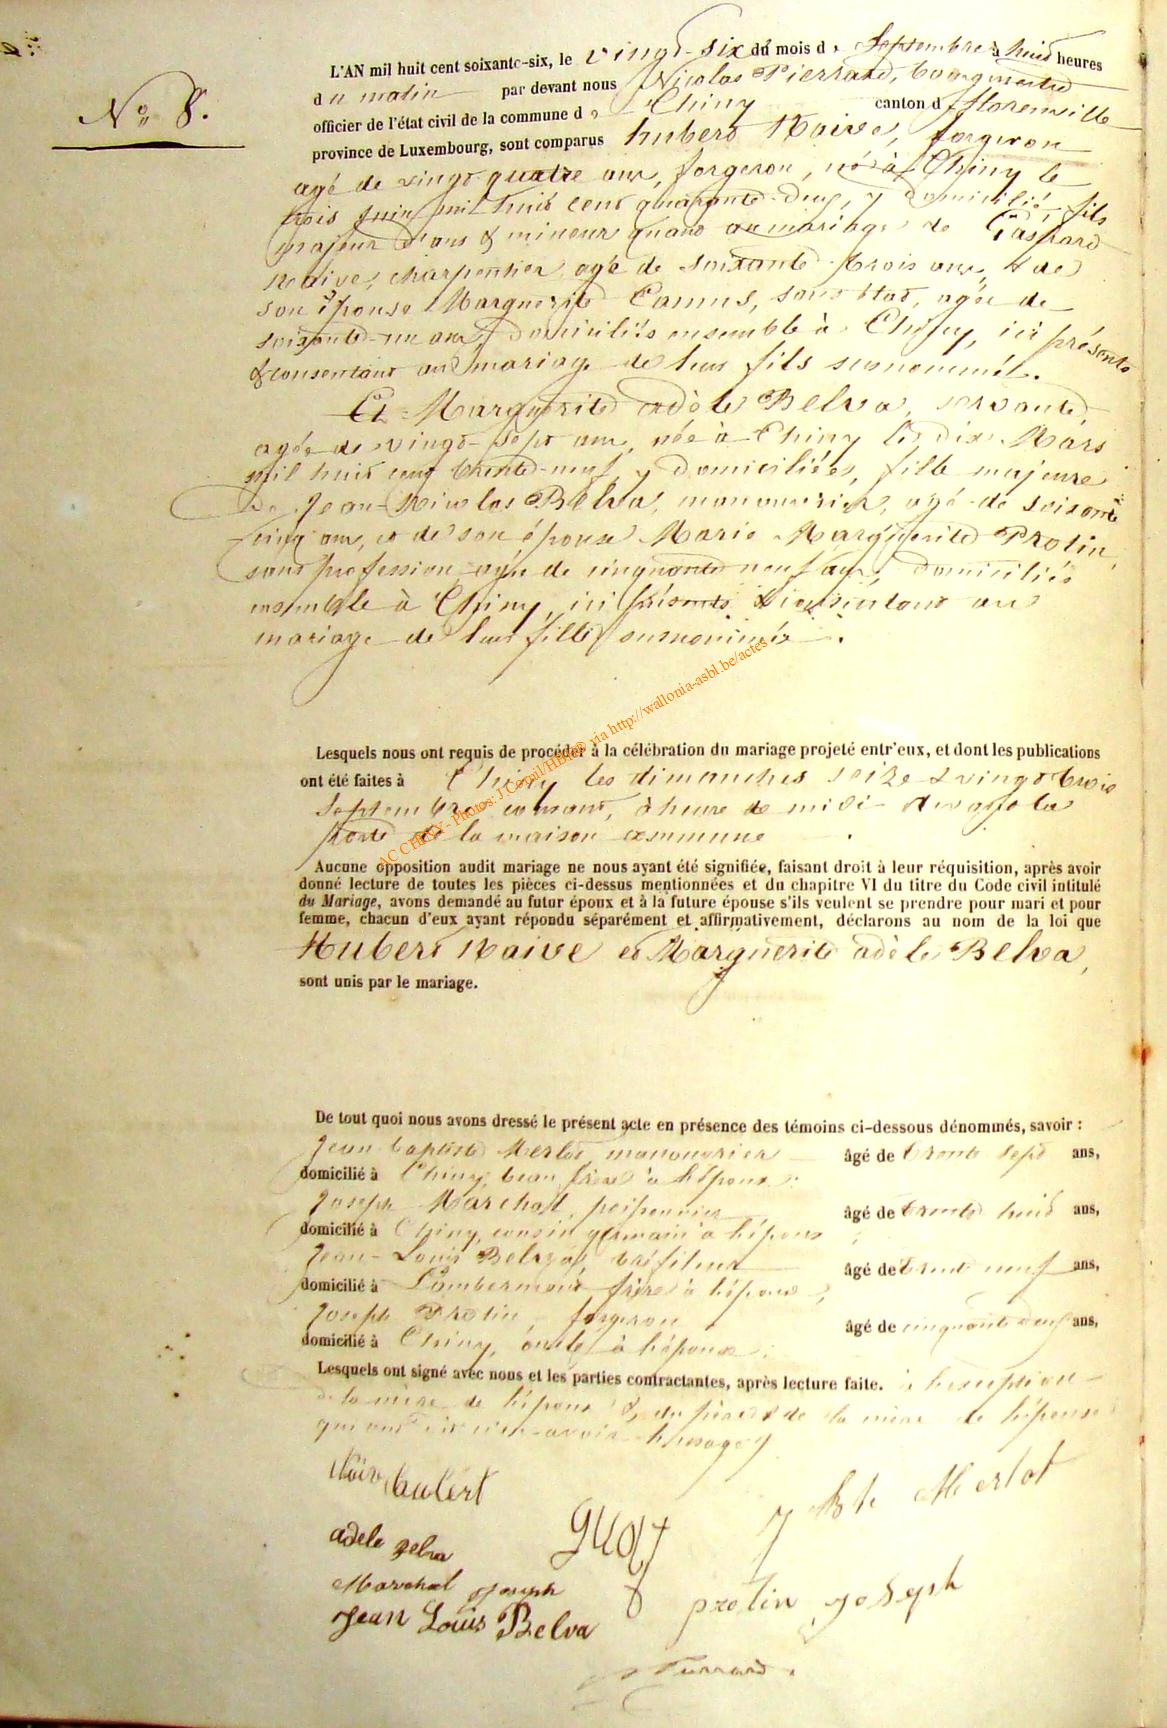 N° 8.
L'AN mil huit cent soixante-six, le vingt-six du mois de Septembre à huit heures
du matin par devant nous Nicolas Pierrard, bourgmestre
officier de l'état civil de la commune de Chiny canton de florenville
province de Luxembourg, sont comparus hubert Naive, forgeron
agé de vingt quatre ans, forgeron, né à Chiny le
trois juin mil huit cent quarante-deux, y domicilié, fils
majeur d'ans & mineur quant au mariage de Gaspard
Naive, charpentier agé de soixante trois ans & de
son épouse Marguerite Camus, sans état, agée de
soixante-un ans, domiciliés ensemble à Chiny, ici présents
& consentant au mariage de leur fils susnommé.
Et Marguerite adèle Belva, servante,
agée de vingt-sept ans, née à Chiny le dix Mars
mil huit cent trente-neuf, y domiciliée, fille majeure
de Jean-Nicolas Belva, manouvrier, agé de soixante
cinq ans, et de son épouse Marie Marguerite Protin,
sans profession agée de cinquante neuf ans, domiciliés
ensemble à Chiny, ici présents & consentant au
mariage de leur fille susnommée.
Lesquels nous ont requis de procéder à la célébration du mariage projeté entr'eux, et dont les publications
ont été faites à Chiny les dimanches seize & vingt trois
Septembre courant, à heure de midi devant la
porte de la maison commune
Aucune opposition audit mariage ne nous ayant été signifiée, faisant droit à leur réquisition, après avoir
donné lecture de toutes les pièces ci-dessus mentionnées et du chapitre VI du titre du Code civil intitulé
du Mariage, avons demandé au futur époux et à la future épouse s'ils veulent se prendre pour mari et pour
femme, chacun d'eux ayant répondu séparément et affirmativement, déclarons au nom de la loi que
Hubert Naive et Marguerite adèle Belva,
sont unis par le mariage.
De tout quoi nous avons dressé le présent acte en présence des témoins ci-dessous dénommés, savoir :
Jean-baptiste Merlot, manouvrier âgé de trente sept ans,
domicilié à Chiny, beau frère à l'époux;
Joseph Marchal, âgé de trente huit ans,
domicilié à Chiny, cousin germain à l'époux;
Jean-Louis Belva, tréfileur âgé de trente neuf ans,
domicilié à Lambermont frère à l'épouse,
Joseph Protin, forgeron âgé de cinquante deux ans,
domicilié à Chiny, oncle à l'épouse;
Lesquels ont signé avec nous et les parties contractantes, après lecture faite. à l'exception
de la mère de l'époux & du père & de la mère de l'épouse
qui ont dit n'en avoir l'usage
Naive hubert
J Bte Merlot
adele Belva
Marchal Joseph
protin joseph
Jean Louis Belva
Pierrard.
AC CHINY - Photos: J Cornil/HB6® via http://wallonia-asbl.be/actes